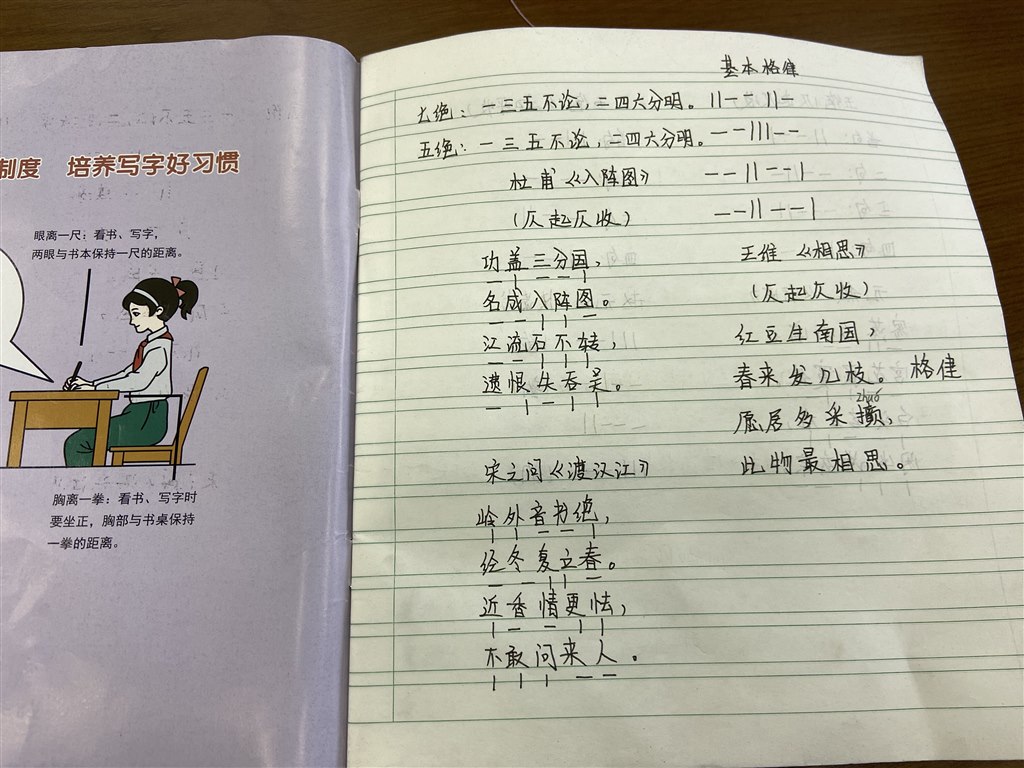 制度 培养写字好习惯
眼离一尺：看书、写字，
两眼与书本保持一尺的距离。
胸离一拳：看书、写字时
要坐正，胸部与书桌保持
一拳的距离。
基本格律
七绝：一三五不论，二四六分明。
五绝：一三五不论，二四六分明。
杜甫《八阵图》
（仄起仄收）
功盖三分国，
名成八阵图。
江流石不转，
遗恨失吞吴。
宋之问《渡汉江》
岭外音书绝，
经冬复立春。
近香情更怯，
不敢问来人。
王维《相思》
（仄起仄收）
红豆生南国，
春来发几枝。格律
愿居多采撷，
zhuó
此物最相思。